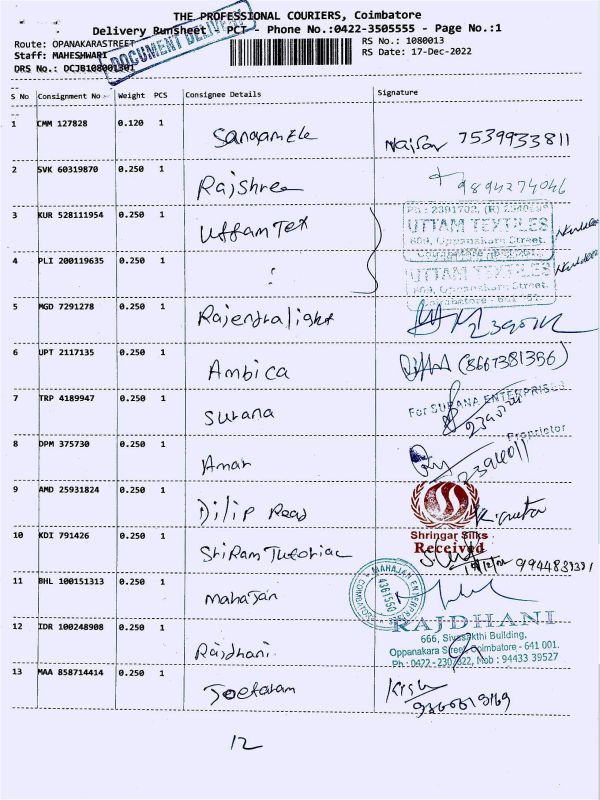 THE PROFESSIONAL COURIERS, Coimbatore
Delivery RunSheet PCT - Phone No.:0422-3505555 - Page No.:1
DOCUMENT DELIVERY
Route: OPANAKARASTREET
RS No.: 1080013
Staff: MAHESHWARI
RS Date: 17-Dec-2022
DRS No.: DCJB108001301
S No Consignment No Weight PCS Consignee Details Signature
1 CMM 127828 0.120 1 Sangam Ele 7539933811
2 SVK 60319870 0.250 1 Rajshree 9894274046
3 KUR 528111954 0.250 1 Uttam Tex
UTTAM TEXTILES
609, Oppanakara Street,
4 PLI 200119635 0.250 1 "
UTTAM TEXTILES
609, Oppanakara Street,
5 MGD 7291278 0.250 1 Rajendralight
6 UPT 2117135 0.250 1 Ambica (8667381356)
7 TRP 4189947 0.250 1 Surana
For SURANA ENTERPRISES
Proprietor
8 DPM 375730 0.250 1 Aman
9 AMD 25931824 0.250 1 Dilip Read
Shringar Silks
Received
10 KDI 791426 0.250 1 SriRam Tutorial
11 BHL 100151313 0.250 1 Mahajan
MAHAJAN ENTERPRISES
COIMBATORE
4361550
12 IDR 100248908 0.250 1 Rajdhani
RAJDHANI
666, Sivasakthi Building,
Oppanakara Street, Coimbatore - 641 001.
Ph : 0422 - 2307822, Mob : 94433 39527
13 MAA 858714414 0.250 1 Jeetaram
12